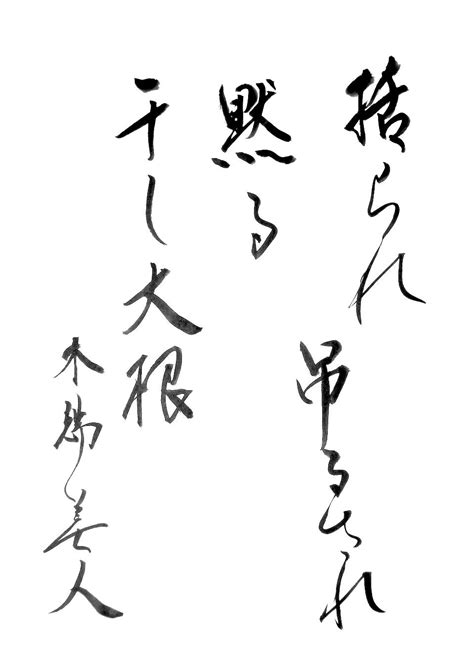 括られ
吊るされ
黙る
干し大根
木 美人